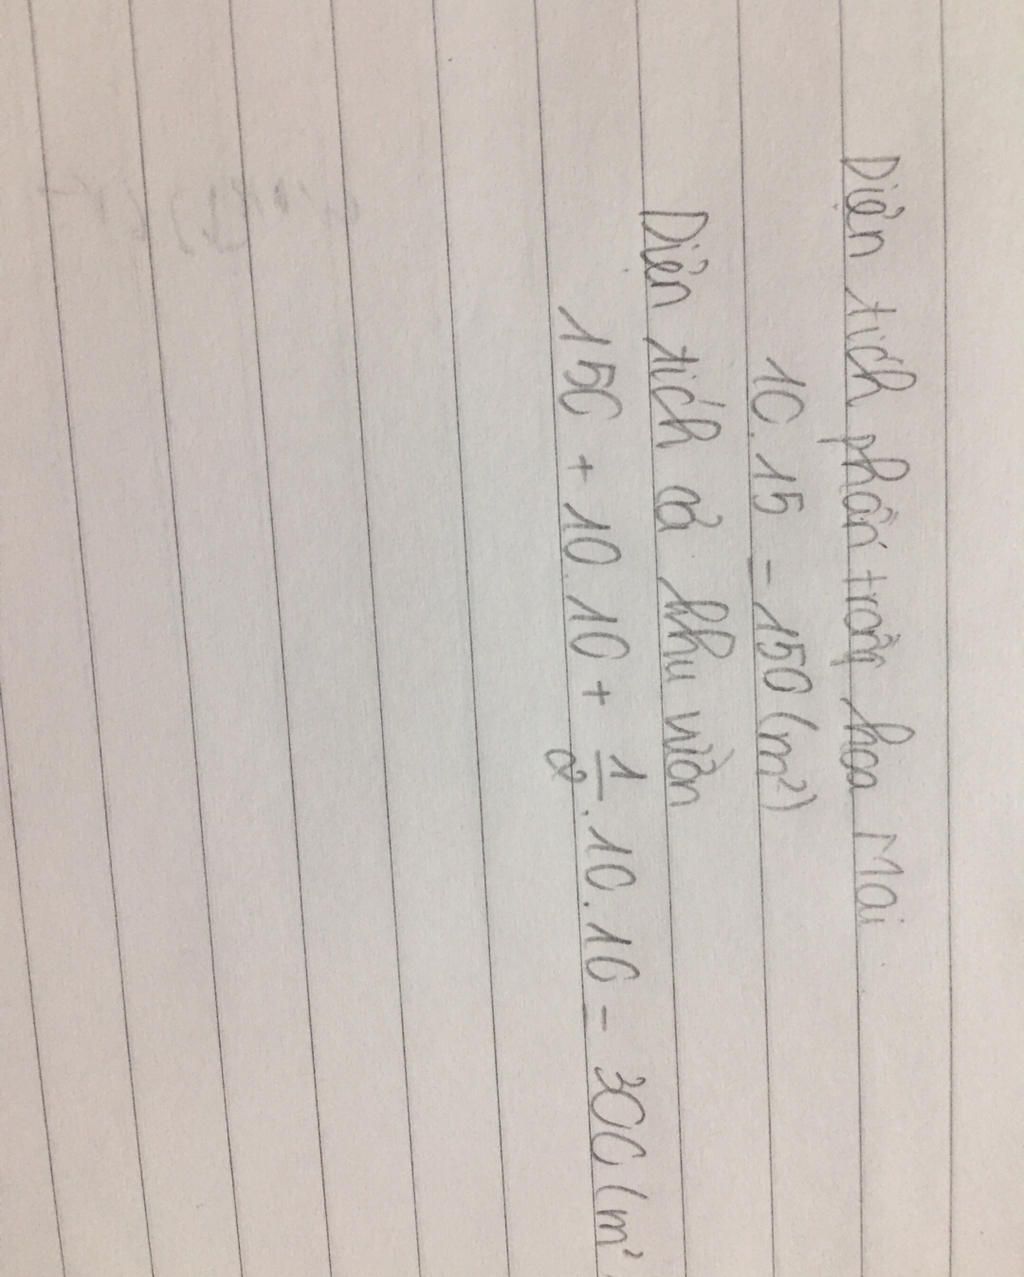 Diện tích phần trồng hoa Mai
10.15 = 150 (m²)
Diện tích cả khu vườn
150 + 10.10 + 1/2 .10.10 = 300 (m²